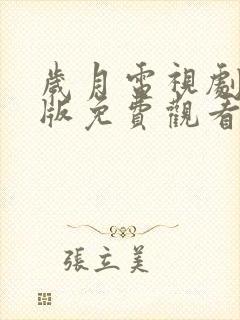 歲月電視劇
版免費觀看
張立美